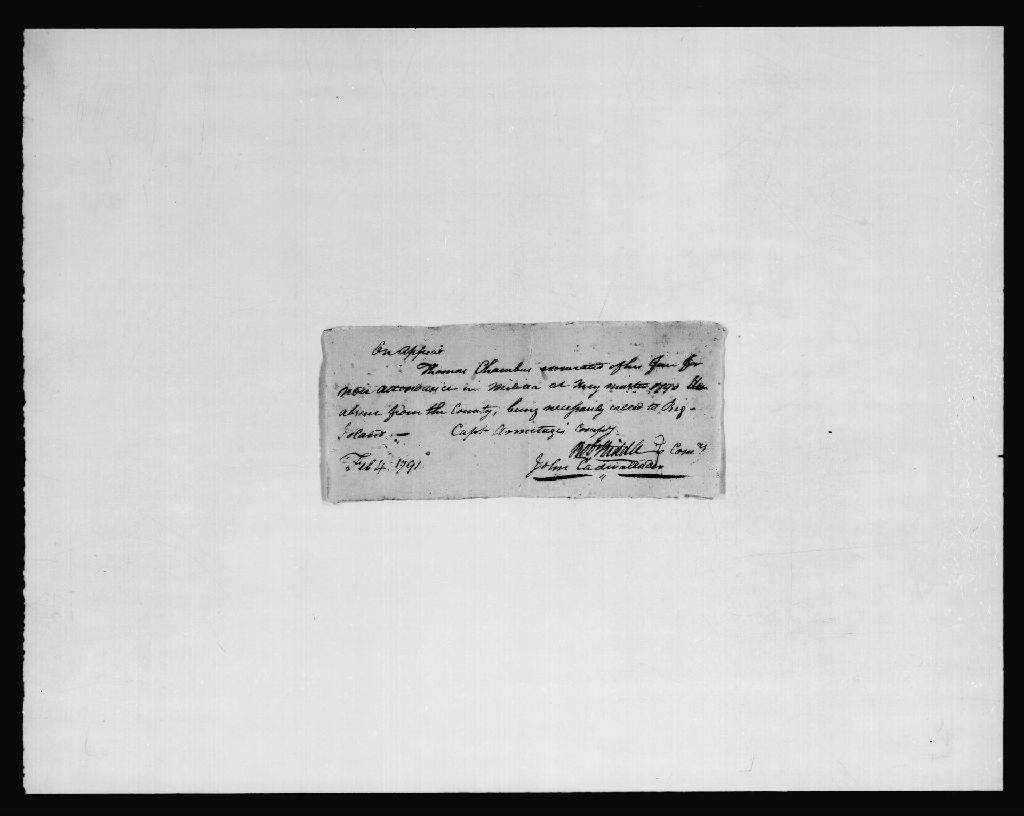 On appeal
Thomas Chambers exonerated of his fine for
non attendance in Militia at May muster 1790
absent from the County, being necessarily called to Big-
Island. — Capt. Armitage's Compy.
Riddle Coms
Feb 4. 1791 John Cadwallader